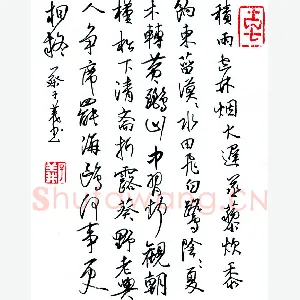 積雨空林烟火遲蒸藜炊黍
餉東菑漠〻水田飛白鷺陰〻夏
木轉黄鸝山中習靜觀朝
槿松下清齋折露葵野老與
人爭席罷海鷗何事更
相疑
Shufawang.CN